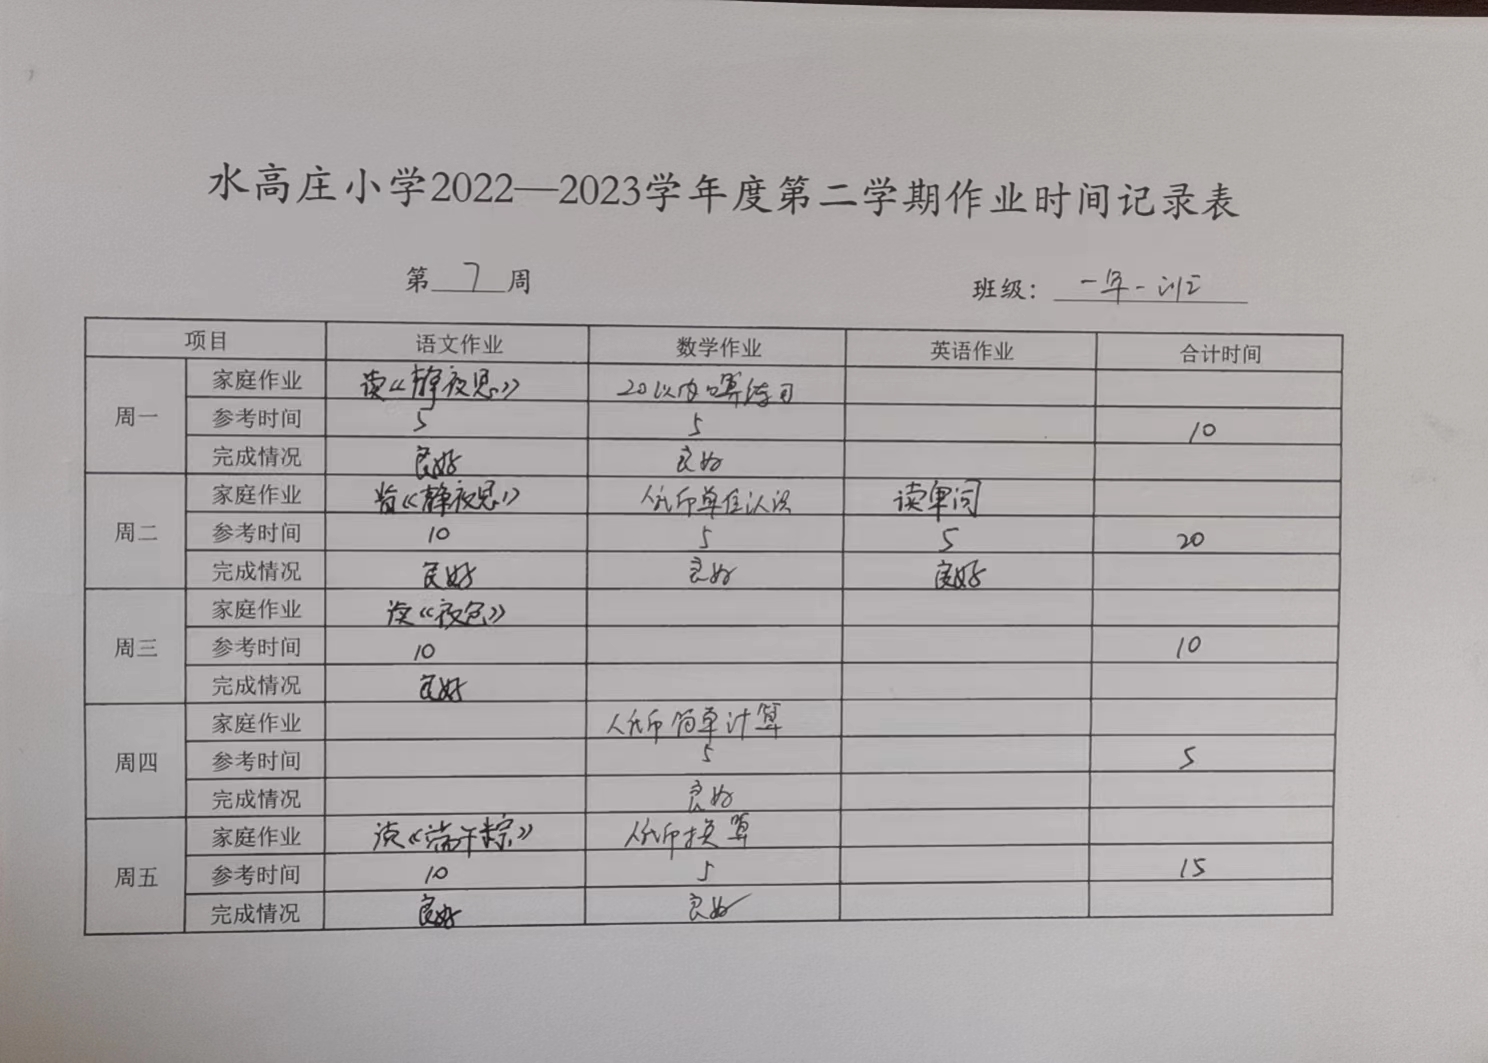 水高庄小学2022—2023学年度第二学期作业时间记录表
第 7 周 班级: 一年一班
项目 语文作业 数学作业 英语作业 合计时间
周一 家庭作业 读《静夜思》 20以内口算练习
参考时间 5 5 10
完成情况 良好 良好
周二 家庭作业 背《静夜思》 人民币单位认识 读单词
参考时间 10 5 5 20
完成情况 良好 良好 良好
周三 家庭作业 读《夜色》
参考时间 10 10
完成情况 良好
周四 家庭作业 人民币简单计算
参考时间 5 5
完成情况 良好
周五 家庭作业 读《端午粽》 人民币换算
参考时间 10 5 15
完成情况 良好 良好